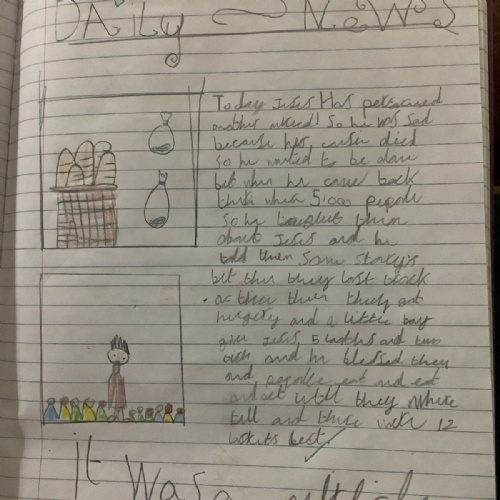 DAily NEWS
Today Jesus Has performed
another mircel! So he was sad
because his cousin died
so he wanted to be alone
but when he came back
there where 5,000 people
So he taught them
about Jesus and he
told them some story's
but then they lost track
of there they got
hungery and a little boy
gave Jesus, 5 loathes and two
and he blessed them
and people eat and eat
and eat until they where
full and there were 12
left.
it was a